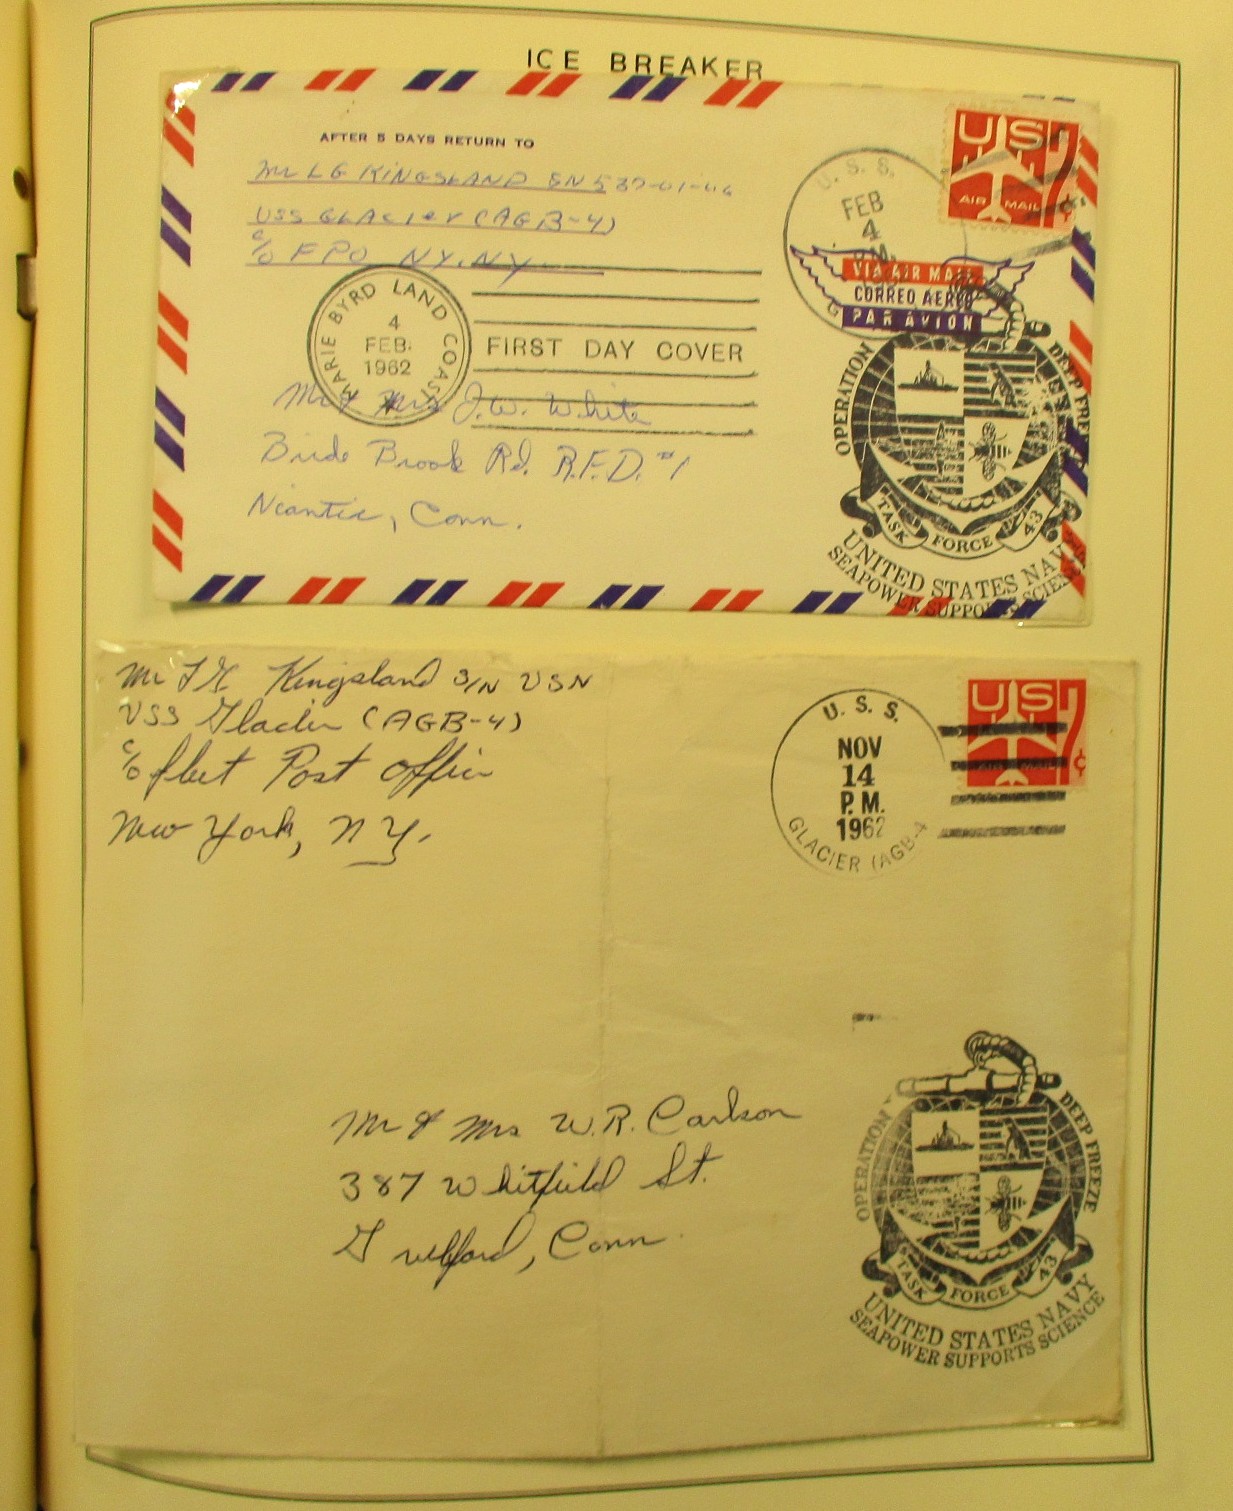 ICE BREAKER
AFTER 5 DAYS RETURN TO
Mr L G KINGSLAND
USS GLACIER (AGB-4)
c/o FPO NY, NY
U. S. S.
FEB
4
P.M.
US 7¢
AIR MAIL
VIA AIR MAIL
CORREO AEREO
PAR AVION
MARIE BYRD LAND COAST
4
FEB.
1962
FIRST DAY COVER
Mr & Mrs J.W. White
Bride Brook Rd. R.F.D. #1
Niantic, Conn.
OPERATION DEEP FREEZE
TASK FORCE 43
UNITED STATES NAVY
SEAPOWER SUPPORTS SCIENCE
Mr L G Kingsland S/N USN
USS Glacier (AGB-4)
c/o Fleet Post Office
New York, N Y.
U. S. S.
NOV
14
P.M.
1962
GLACIER (AGB-4
US 7¢
AIR MAIL
Mr & Mrs W.R. Carlson
387 Whitfield St.
Guilford, Conn.
OPERATION DEEP FREEZE
TASK FORCE 43
UNITED STATES NAVY
SEAPOWER SUPPORTS SCIENCE